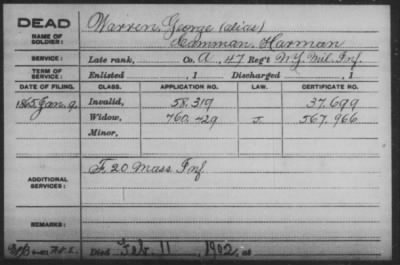 DEAD
NAME OF SOLDIER:
Warren, George (alias)
Damman, Harman
SERVICE:
Late rank, Co. A, 47 Reg't N.Y. Mil. Inf.
TERM OF SERVICE:
Enlisted , 1 Discharged , 1
DATE OF FILING. CLASS. APPLICATION NO. LAW. CERTIFICATE NO.
1865 Jan. 9. Invalid, 58.319 37.699
Widow, 760.429 567.966
Minor,
ADDITIONAL SERVICES:
F. 20 Mass. Inf.
REMARKS:
Died Feb. 11, 1902, at